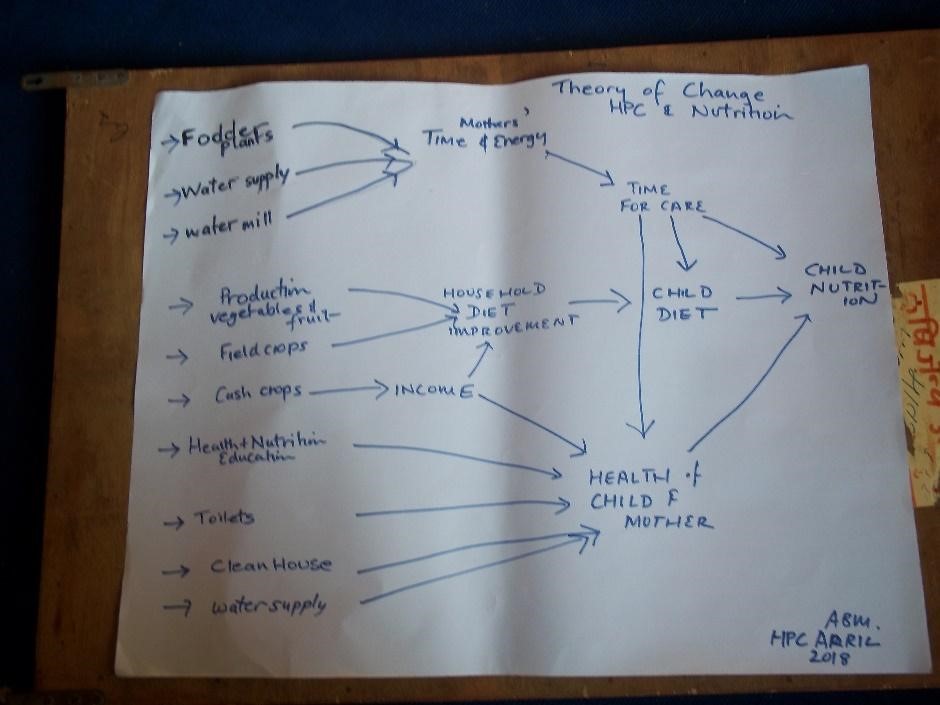 Theory of Change
HPC & Nutrition
→ Fodder
plants
→ Water supply
→ water mill
Mothers'
Time & Energy
TIME
FOR CARE
→ Production
vegetables &
fruit
→ Field crops
→ Cash crops
INCOME
HOUSEHOLD
DIET
IMPROVEMENT
CHILD
DIET
CHILD
NUTRIT-
ION
→ Health + Nutrition
Education
→ Toilets
→ Clean House
→ water supply
HEALTH of
CHILD &
MOTHER
ABM.
HPC APRIL
2018